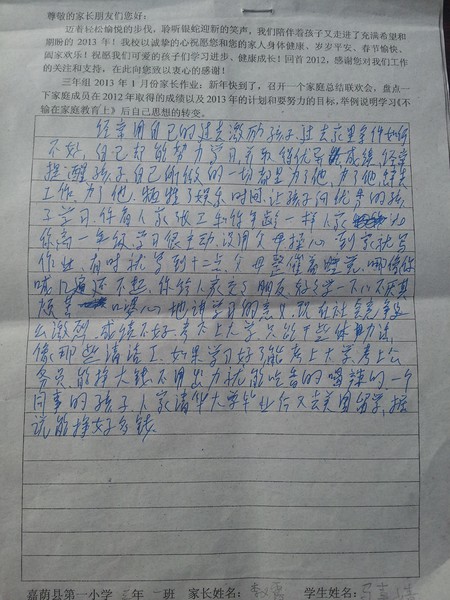 尊敬的家长朋友们您好：
迈着轻松愉悦的步伐，聆听银蛇迎新的笑声，我们陪伴着孩子又走进了充满希望和
期盼的 2013 年！我校以诚挚的心祝愿您和您的家人身体健康、岁岁平安、春节愉快、
阖家欢乐！祝愿我们可爱的孩子们学习进步、健康成长！回首 2012，感谢您对我们工作
的关注和支持，在此向您致以衷心的感谢！
三年组 2013 年 1 月份家长作业：新年快到了，召开一个家庭总结联欢会，盘点一
下家庭成员在 2012 年取得的成绩以及 2013 年的计划和要努力的目标，举例说明学习《不
输在家庭教育上》后自己思想的转变。
经常用自己的过去激励孩子，过去家里条件如何
不好，自己却能努力学习，并取得优异成绩，经常
提醒孩子，自己所做的一切都是为了他，为了他
工作，为了他，牺牲了娱乐时间，让孩子向优秀的孩
子学习，你看人家张工和你年龄一样人家比
你高一年级，学习很主动，没用父母操心，到家就写
作业，有时就写到十二点，父母整催着睡觉，哪像你
喊几遍还不起，你给人家交了朋友，好好学一下，不厌其
烦苦口婆心地讲学习的意义，现在社会竞争这
么激烈，成绩不好，考不上大学，只能干些体力活，
像那些清洁工，如果学习好了能考上大学，考上公
务员，能挣大钱不用出力就能吃香的喝辣的，一个
同事的孩子，人家清华大学毕业后又去美国留学，据
说能挣好多钱。
嘉荫县第一小学 三年 一班 家长姓名： 学生姓名：